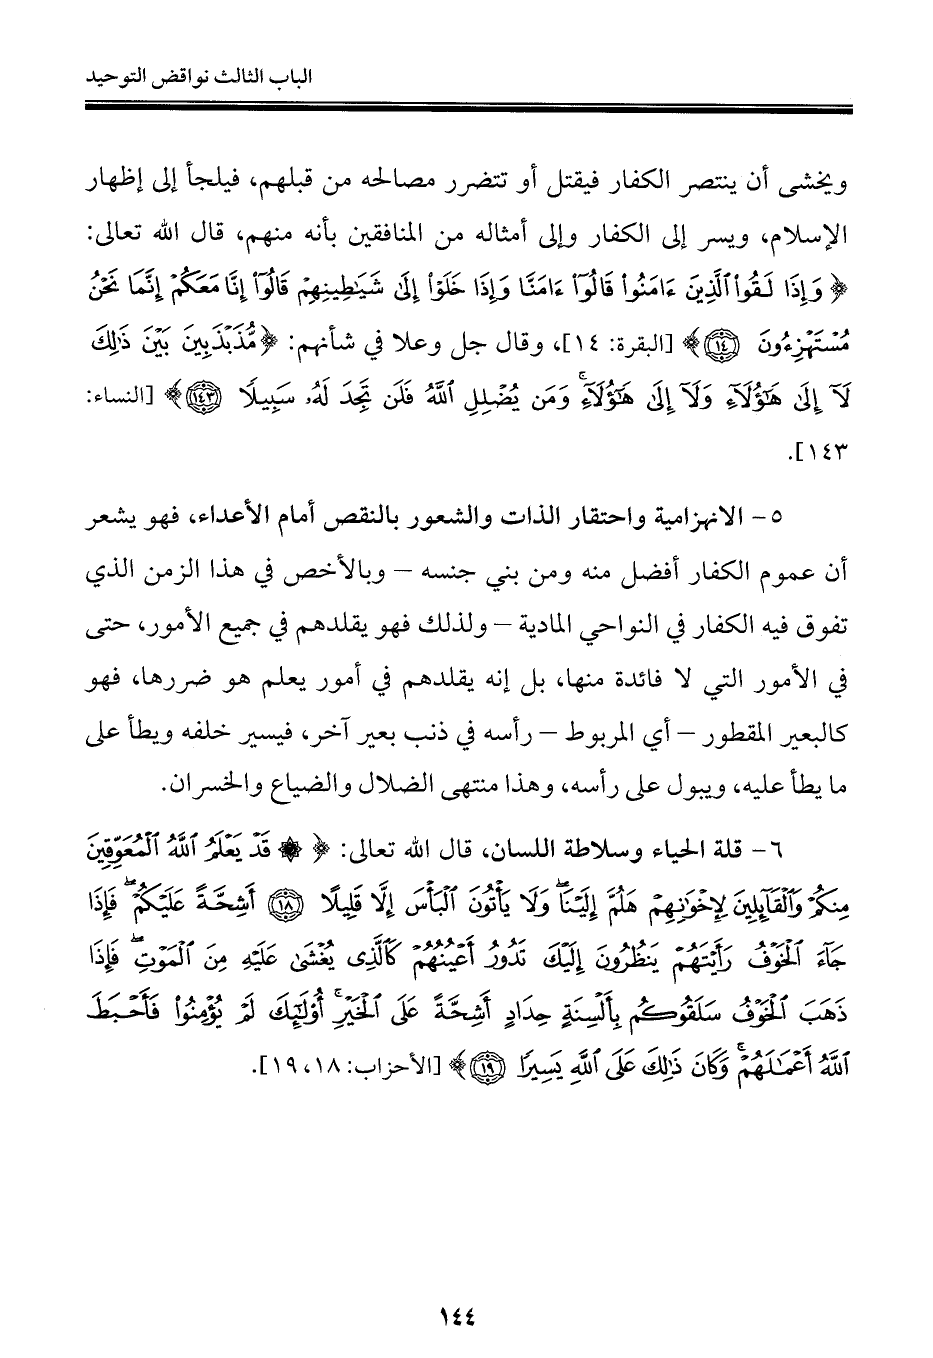 الباب الثالث نواقض التوحيد
ويخشى أن ينتصر الكفار فيقتل أو تتضرر مصالحه من قبلهم، فيلجأ إلى إظهار
الإسلام، ويسر إلى الكفار وإلى أمثاله من المنافقين بأنه منهم، قال الله تعالى:
﴿ وَإِذَا لَقُوا۟ ٱلَّذِينَ ءَامَنُوا۟ قَالُوٓا۟ ءَامَنَّا وَإِذَا خَلَوْا۟ إِلَىٰ شَيَـٰطِينِهِمْ قَالُوٓا۟ إِنَّا مَعَكُمْ إِنَّمَا نَحْنُ
مُسْتَهْزِءُونَ ١٤﴾ [البقرة: ١٤]، وقال جل وعلا في شأنهم: ﴿مُّذَبْذَبِينَ بَيْنَ ذَٰلِكَ
لَآ إِلَىٰ هَـٰٓؤُلَآءِ وَلَآ إِلَىٰ هَـٰٓؤُلَآءِ ۚ وَمَن يُضْلِلِ ٱللَّهُ فَلَن تَجِدَ لَهُۥ سَبِيلًا ١٤٣﴾ [النساء:
١٤٣].
٥- الانهزامية واحتقار الذات والشعور بالنقص أمام الأعداء، فهو يشعر
أن عموم الكفار أفضل منه ومن بني جنسه – وبالأخص في هذا الزمن الذي
تفوق فيه الكفار في النواحي المادية – ولذلك فهو يقلدهم في جميع الأمور، حتى
في الأمور التي لا فائدة منها، بل إنه يقلدهم في أمور يعلم هو ضررها، فهو
كالبعير المقطور – أي المربوط – رأسه في ذنب بعير آخر، فيسير خلفه ويطأ على
ما يطأ عليه، ويبول على رأسه، وهذا منتهى الضلال والضياع والخسران.
٦- قلة الحياء وسلاطة اللسان، قال الله تعالى: ﴿ ۞ قَدْ يَعْلَمُ ٱللَّهُ ٱلْمُعَوِّقِينَ
مِنكُمْ وَٱلْقَآئِلِينَ لِإِخْوَٰنِهِمْ هَلُمَّ إِلَيْنَا ۖ وَلَا يَأْتُونَ ٱلْبَأْسَ إِلَّا قَلِيلًا ١٨ أَشِحَّةً عَلَيْكُمْ ۖ فَإِذَا
جَآءَ ٱلْخَوْفُ رَأَيْتَهُمْ يَنظُرُونَ إِلَيْكَ تَدُورُ أَعْيُنُهُمْ كَٱلَّذِى يُغْشَىٰ عَلَيْهِ مِنَ ٱلْمَوْتِ ۖ فَإِذَا
ذَهَبَ ٱلْخَوْفُ سَلَقُوكُم بِأَلْسِنَةٍ حِدَادٍ أَشِحَّةً عَلَى ٱلْخَيْرِ ۚ أُو۟لَـٰٓئِكَ لَمْ يُؤْمِنُوا۟ فَأَحْبَطَ
ٱللَّهُ أَعْمَـٰلَهُمْ ۚ وَكَانَ ذَٰلِكَ عَلَى ٱللَّهِ يَسِيرًا ١٩﴾ [الأحزاب: ١٨، ١٩].
١٤٤